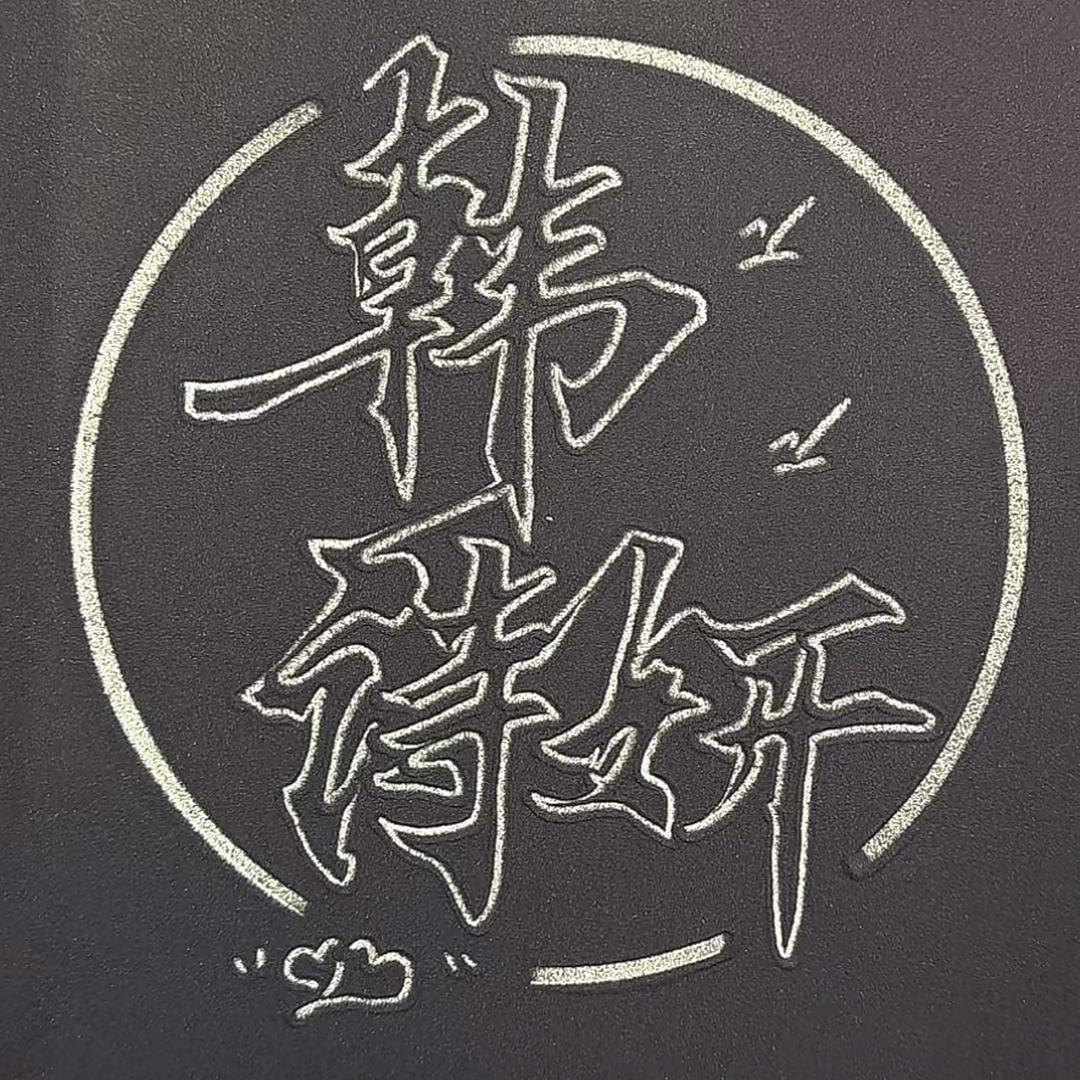 韩
诗妍